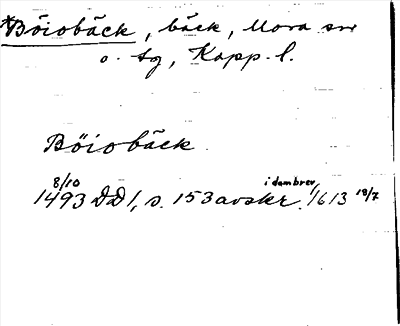 *Böiobäck, bäck, Mora sn
o. tg, Kopp. l.
Böiobäck
8/10 i dombrev
1493 DD 1, s. 153 avskr. 1613 18/7